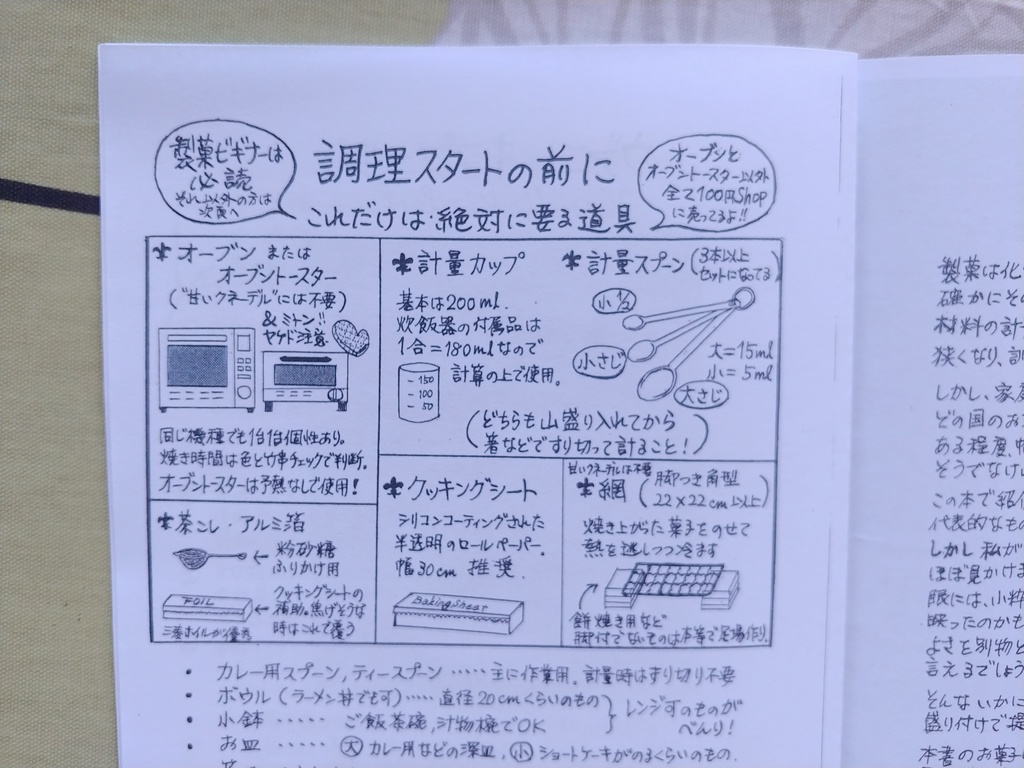 製菓ビギナーは
必読
それ以外の方は
次頁へ
調理スタートの前に
これだけは・絶対に要る道具
オーブンと
オーブントースター以外
全て100円Shop
に売ってるよ!!
＊オーブン または
オーブントースター
("甘いクネーデル"には不要)
& ミトン!!
ヤケド注意
同じ機種でも1台1台個性あり。
焼き時間は色と竹串チェックで判断。
オーブントースターは予熱なしで使用!
＊計量カップ
基本は200ml.
炊飯器の付属品は
1合=180mlなので
計算の上で使用。
150
100
50
＊計量スプーン(3本以上
セットになってる)
小1/2
小さじ
大さじ
大=15ml
小=5ml
(どちらも山盛り入れてから
箸などですり切って計ること!)
＊茶こし・アルミ箔
粉砂糖
ふりかけ用
FOIL
クッキングシートの
補助。焦げそうな
時はこれで覆う
三菱ホイルが優秀
＊クッキングシート
シリコンコーティングされた
半透明のロールペーパー.
幅30cm 推奨.
Baking Sheet
甘いクネーデルは不要
＊網(脚つき角型
22×22cm以上)
焼き上がった菓子をのせて
熱を逃しつつ冷ます
餅焼き用など
脚付でないものは本等で足場作り.
・ カレー用スプーン, ティースプーン ‥‥‥主に作業用。計量時はすり切り不要
・ ボウル (ラーメン丼でも可)‥‥‥ 直径20cmくらいのもの
・ 小鉢 ‥‥‥ ご飯茶碗, 汁物椀でOK
レンジ可のものが
べんり!
・ お皿 ‥‥‥ 大 カレー用などの深皿, 小 ショートケーキがのるくらいのもの.
製菓は化
確かにその
材料の計
狭くなり、
しかし、家庭
どの国のお
ある程度、
そうでなけ
この本で紹
代表的なもの
しかし 私が
ほぼ見かけ
眼には、小粋
映ったのかも
よさを別物と
言えるでしょう
そんな いかに
盛り付けで提
本書のお菓子